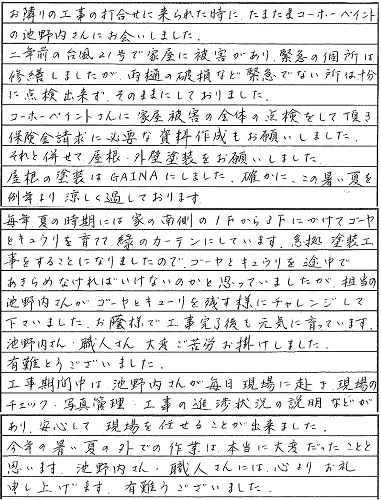 お隣りの工事の打合せに来られた時に、たまたまコーホーペイント
の池野内さんにお会いしました。
二年前の台風21号で家屋に被害があり、緊急の個所は
修繕しましたが、雨樋の破損など緊急でない所は十分
に点検出来ず、そのままにしておりました。
コーホーペイントさんに家屋被害の全体の点検をして頂き
保険金請求に必要な資料作成もお願いしました。
それと併せて屋根・外壁塗装をお願いしました。
屋根の塗装はGAINAにしました。確かに、この暑い夏を
例年より涼しく過しております。
毎年、夏の時期には家の南側の1Fから3Fにかけてゴーヤ
とキュウリを育てて緑のカーテンにしています。急拠塗装工
事をすることになりましたので、ゴーヤとキュウリを途中で
あきらめなければいけないのかと思っていましたが、担当の
池野内さんが、ゴーヤとキューリを残す様にチャレンジして
下さいました。お蔭様で工事完了後も元気に育っています。
池野内さん・職人さん大変ご苦労お掛けしました。
有難とうございました。
工事期間中は、池野内さんが毎日現場に赴き、現場の
チェック・写真管理・工事の進渉状況の説明などが
あり、安心して現場を任せることが出来ました。
今年の暑い夏の外での作業は、本当に大変だったことと
思います。池野内さん・職人さんには、心よりお礼
申し上げます。有難うございました。